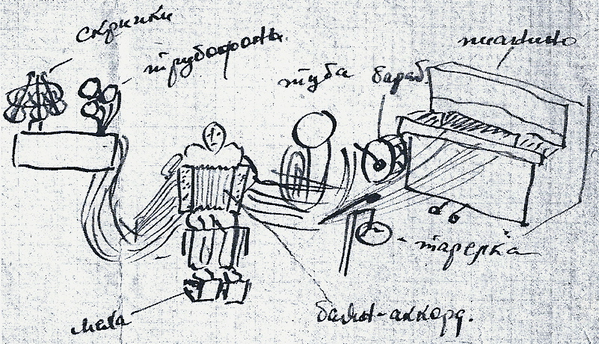 скрипки
трубофоны.
туба
бараб
пианино
тарелка
меха
баян-аккорд.